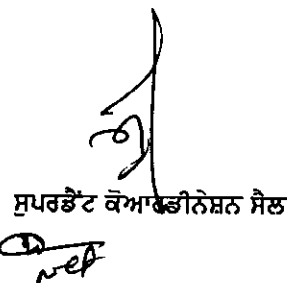 ਸੁਪਰਡੈਂਟ ਕੋਆਰਡੀਨੇਸ਼ਨ ਸੈਲ